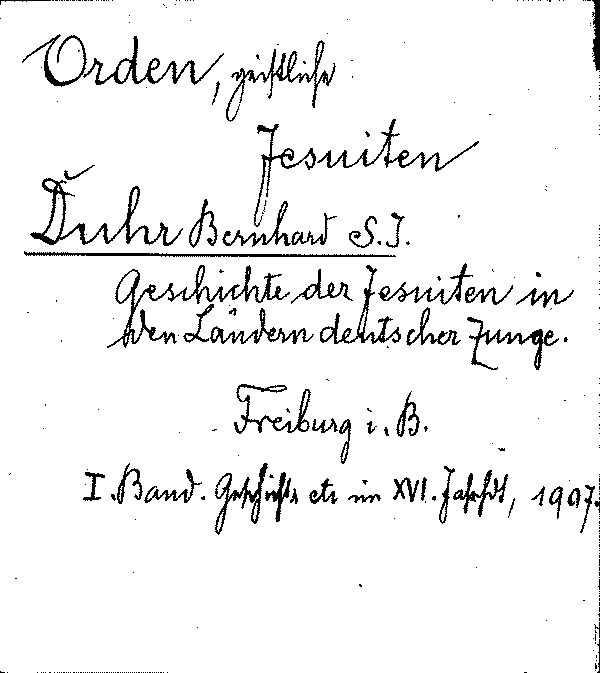 Orden, geistliche
Jesuiten
Duhr Bernhard S.J.
Geschichte der Jesuiten in
den Ländern deutscher Zunge.
Freiburg i. B.
I. Band. Geschichte etc im XVI. Jahrhdt, 1907.